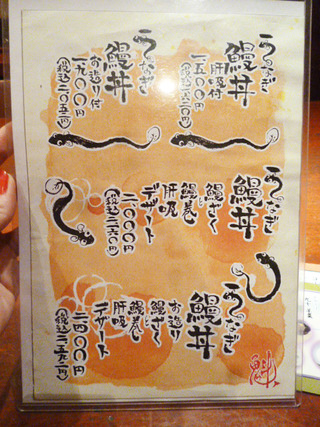 うなぎ
鰻丼
肝吸付
一五〇〇円
(税込一六二〇円)
うなぎ
鰻丼
お造り付
一九〇〇円
(税込二〇五二円)
うなぎ
鰻丼
鰻ざく
鰻巻き
肝吸
デザート
二〇〇〇円
(税込二一六〇円)
うなぎ
鰻丼
お造り
鰻ざく
鰻巻き
肝吸
デザート
二四〇〇円
(税込二五九二円)
魁